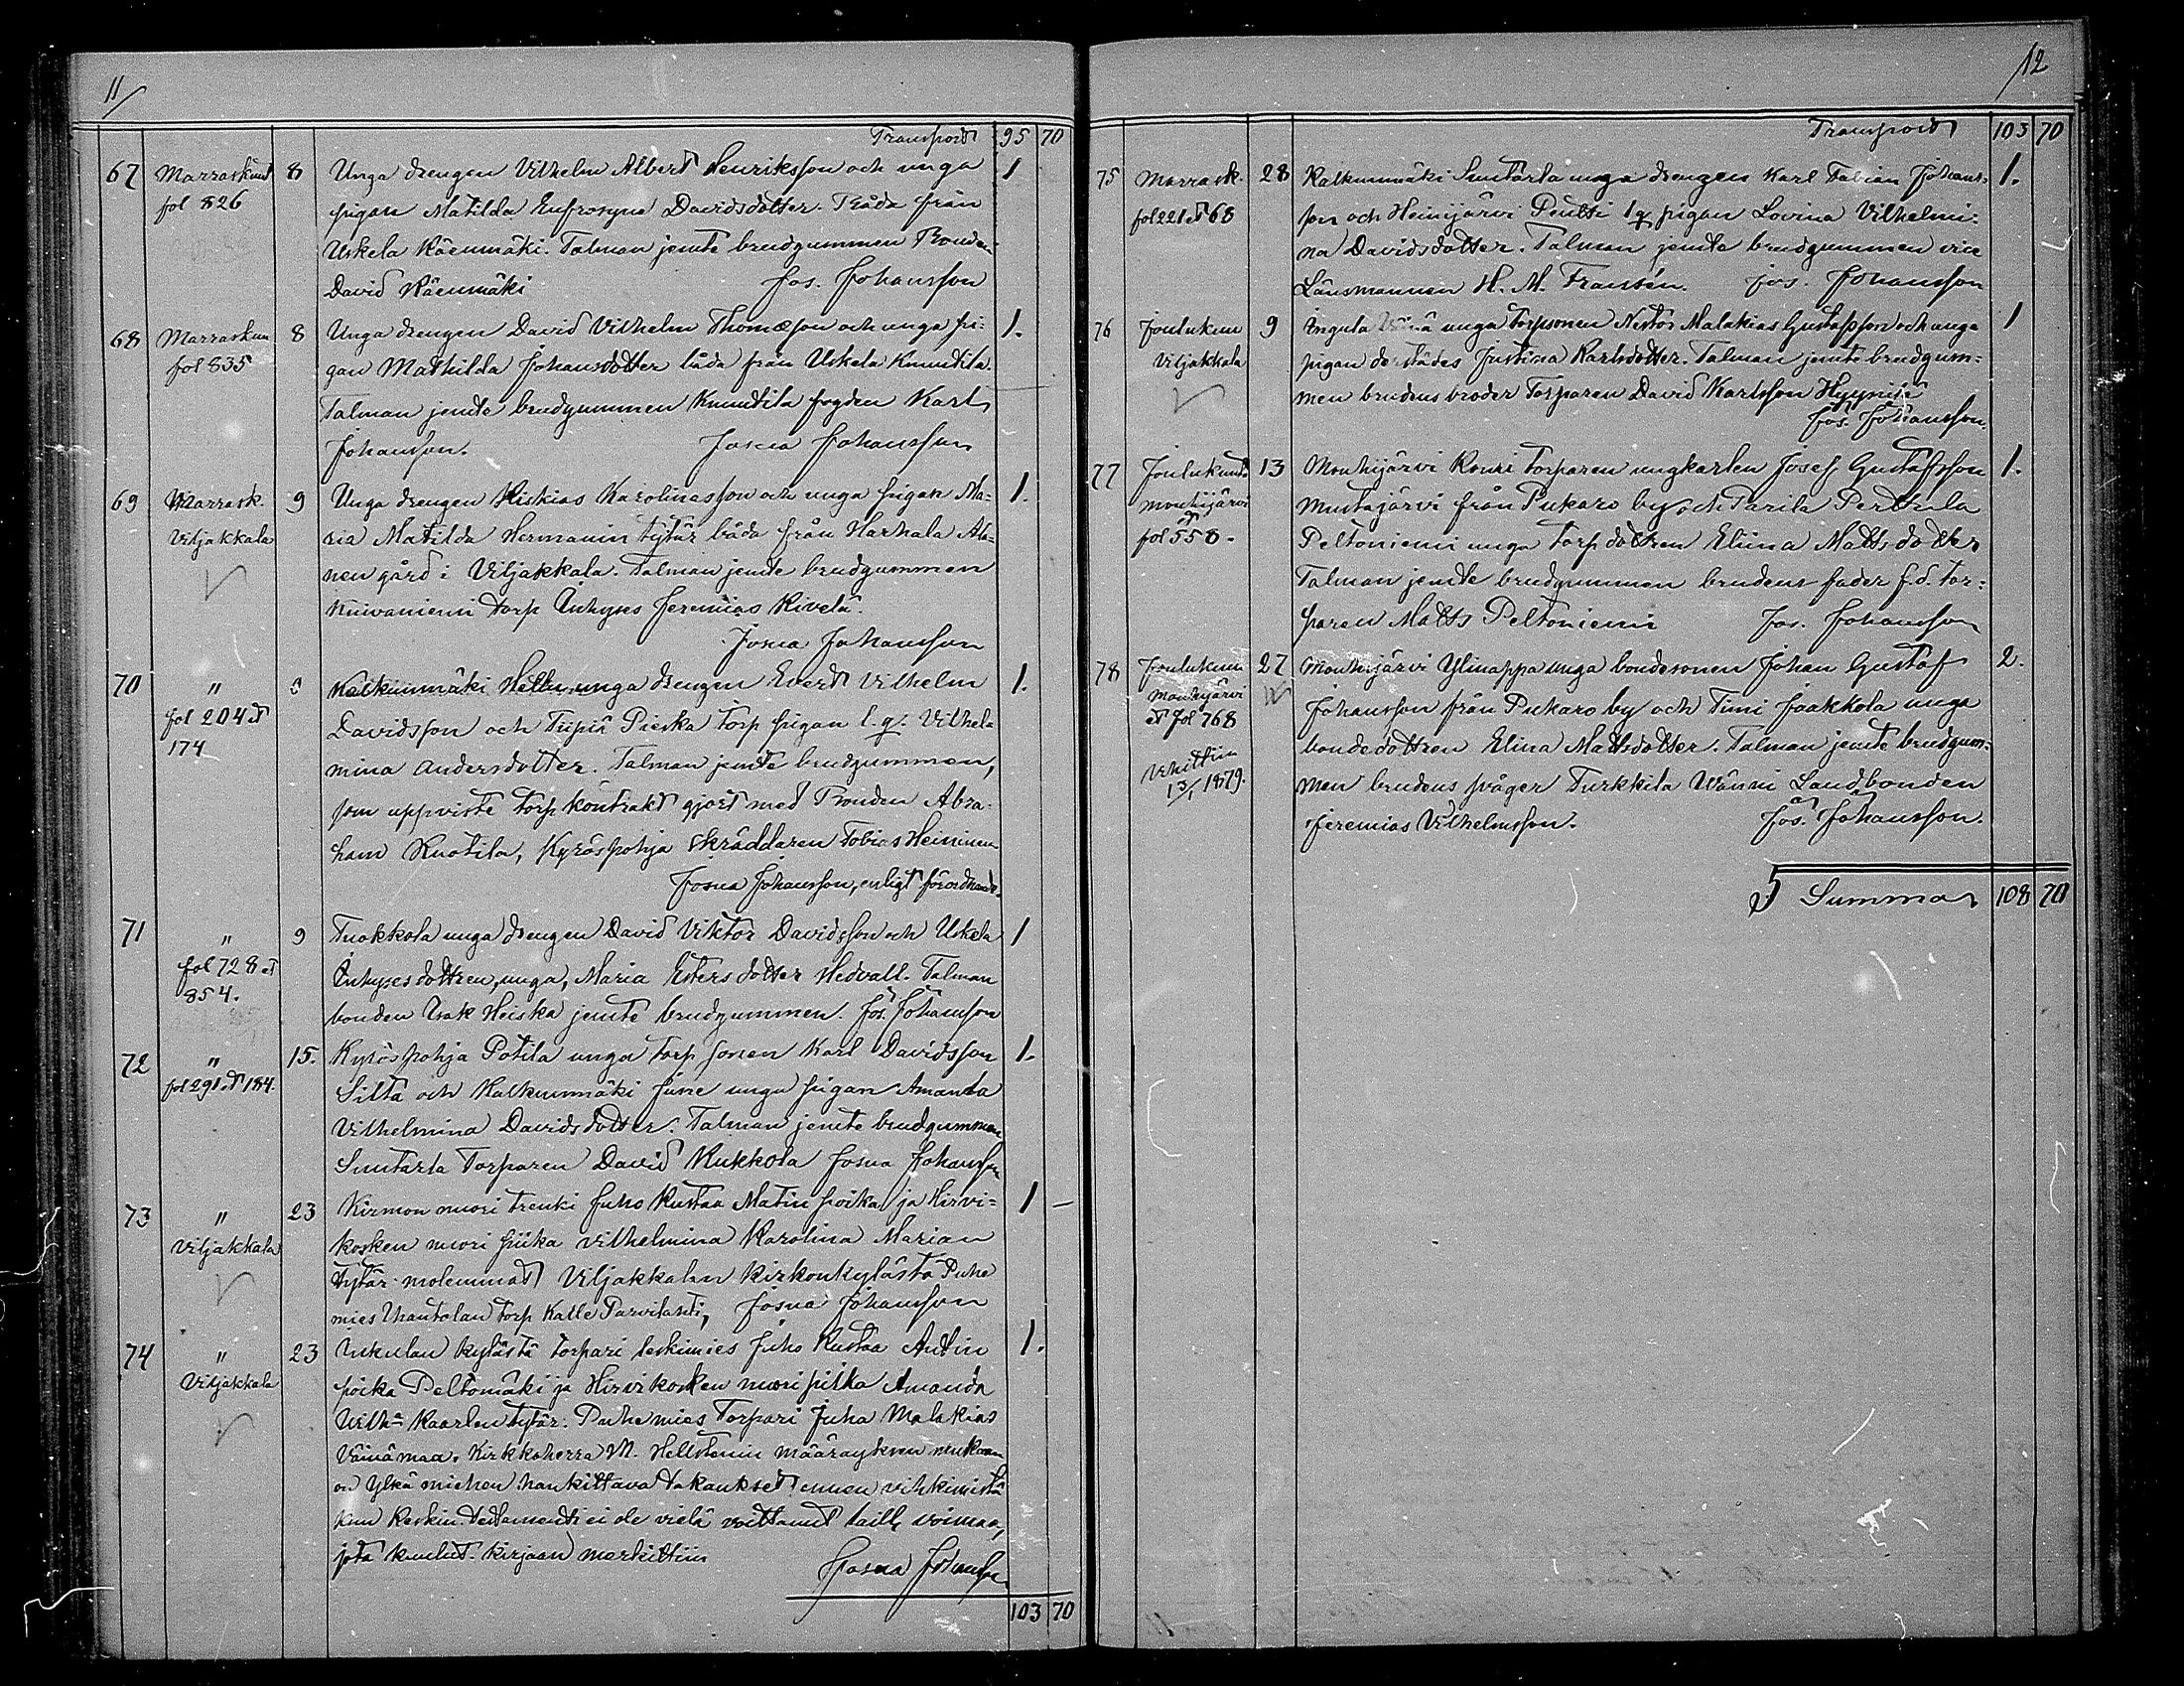 11/
Transport 95 70
67 Marraskuut 8 Unga drengen Vilhelm Albert Henriksson och unga 1
fol 826 pigan Matilda Eufrosyna Davidsdotter. Båda från
Uskela Räenmäki. Talman jemte brudgummen Bonden
David Räenmäki Jos. Johansson
68 Marraskuu 8 Unga drengen David Vilhelm Thomæson och unga pi- 1.
fol 835 gan Mathilda Johansdotter båda från Uskela Knuutila.
Talman jemte brudgummen Knuutila fogden Karl
Johansson. Josua Johansson
69 Marrask. 9 Unga drengen Hiskias Karolinasson och unga pigan Ma- 1.
Viljakkala ria Matilda Hermanin tytär båda från Harhala Ala-
nen gård i Viljakkala. Talman jemte brudgummen
Kuivaniemi torp Inhyses Jeremias Kivelä.
Josua Johansson
70 " Kalkunmäki unga drengen Evert Vilhelm 1.
fol 204 et Davidsson och Tiipiä Pieska torp pigan l. q. Vilhel-
174 mina Andersdotter. Talman jemte brudgummen,
som uppviste torp kontrakt gjort med Bonden Abra-
ham Knotila, Kyröspohja skräddaren Tobias Heininen
Josua Johansson, enligt förordnande.
71 " 9 Tuokkola unga drengen David Viktor Davidsson och Uskela 1
fol 728 et Inhysesdottren, unga, Maria Estersdotter Hedvall. Talman
854. bonden Isak Heiska jemte brudgummen. Jos. Johansson
72 " 15. Kyröspohja Potila unga torpsonen Karl Davidsson 1.
fol 291 et 184. Silta och Kalkunmäki unga pigan Amanda
Vilhelmina Davidsdotter. Talman jemte brudgummen
Torparen David Kukkola Josua Johansson
73 " 23 Kirmon nuori trenki Juho Kustaa Matin poika ja Hirvi- 1 –
Viljakkala kosken nuori piika Vilhelmina Karolina Marian
tytär molemmat Viljakkalan kirkonkylästä Puhe
mies torp Kalle Josua Johansson
74 " 23 Inkulan kylästä torpari leskimies Juho Kustaa Antin 1.
Viljakkala poika Peltomäki ja Hirvikosken nuori piika Amanda
Vilh:a Kaarlen tytär. Puhemies Torpari Juha Malakias
Väinämaa. Kirkkoherra M. Hellstenin määräyksen mukaan
on ylkä miehen hankittava takaukset ennen vihkimistä
kun Keskin. testamenti ei ole vielä voittanut lailli. voimaa,
jota kuulut. kirjaan merkittiin Josua Johansson
103 70
/12
Transport 103 70
75 Marrask. 28 Kalkunmäki Suutarla unga drengen Karl Fabian Johans- 1.
fol 221 et 68 son och Heinijärvi Pentti l q pigan Lovina Vilhelmi-
na Davidsdotter. Talman jemte brudgummen vice
Länsmannen H. M. Fransén. Jos. Johansson
76 Joulukuu 9 Ingula unga torpsonen Nestor Malakias Gustafsson och unga 1
Viljakkala pigan derstädes Justina Karlsdotter. Talman jemte brudgum-
men brudens broder Torparen David Karlsson
Jos. Johansson.
77 Joulukuuta 13 Mouhijärvi Kouri Torparen ungkarlen Josef Gustafsson 1.
Mouhijärvi Mustajärvi från Pukaro by och Parila Perttula
et fol 558. Peltoniemi unga torpdottren Eliina Mattsdotter
Talman jemte brudgummen brudens fader f.d. tor-
paren Matts Peltoniemi Jos. Johansson
78 Joulukuu 27 Mouhijärvi Ylinappa unga bondesonen Johan Gustaf 2.
Mouhijärvi Johansson från Pukaro by och Timi Jaakkola unga
et fol 768 bondedottren Elina Mattsdotter. Talman jemte brudgum-
Vihittiin 13/1 1879. men brudens svåger Turkkila Wänni Landbonden
Jeremias Vilhelmsson. Jos. Johansson.
Summa 108 70